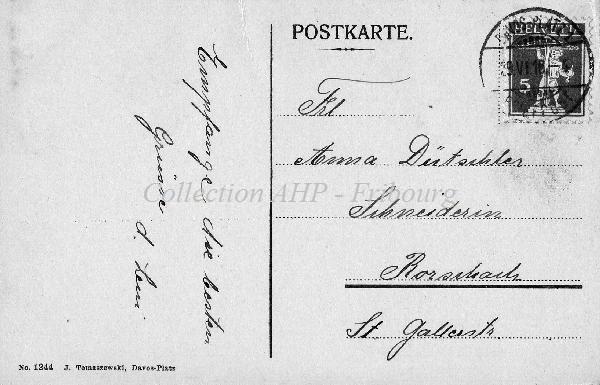 POSTKARTE.
HELVETIA
5
Frl
Anna Dütschler
Schneiderin
Rorschach
St. Gallerstr.
Empfange die besten
Grüsse
d. Leni
Collection AHP - Fribourg
No. 1244 J. Tomaszewski, Davos-Platz